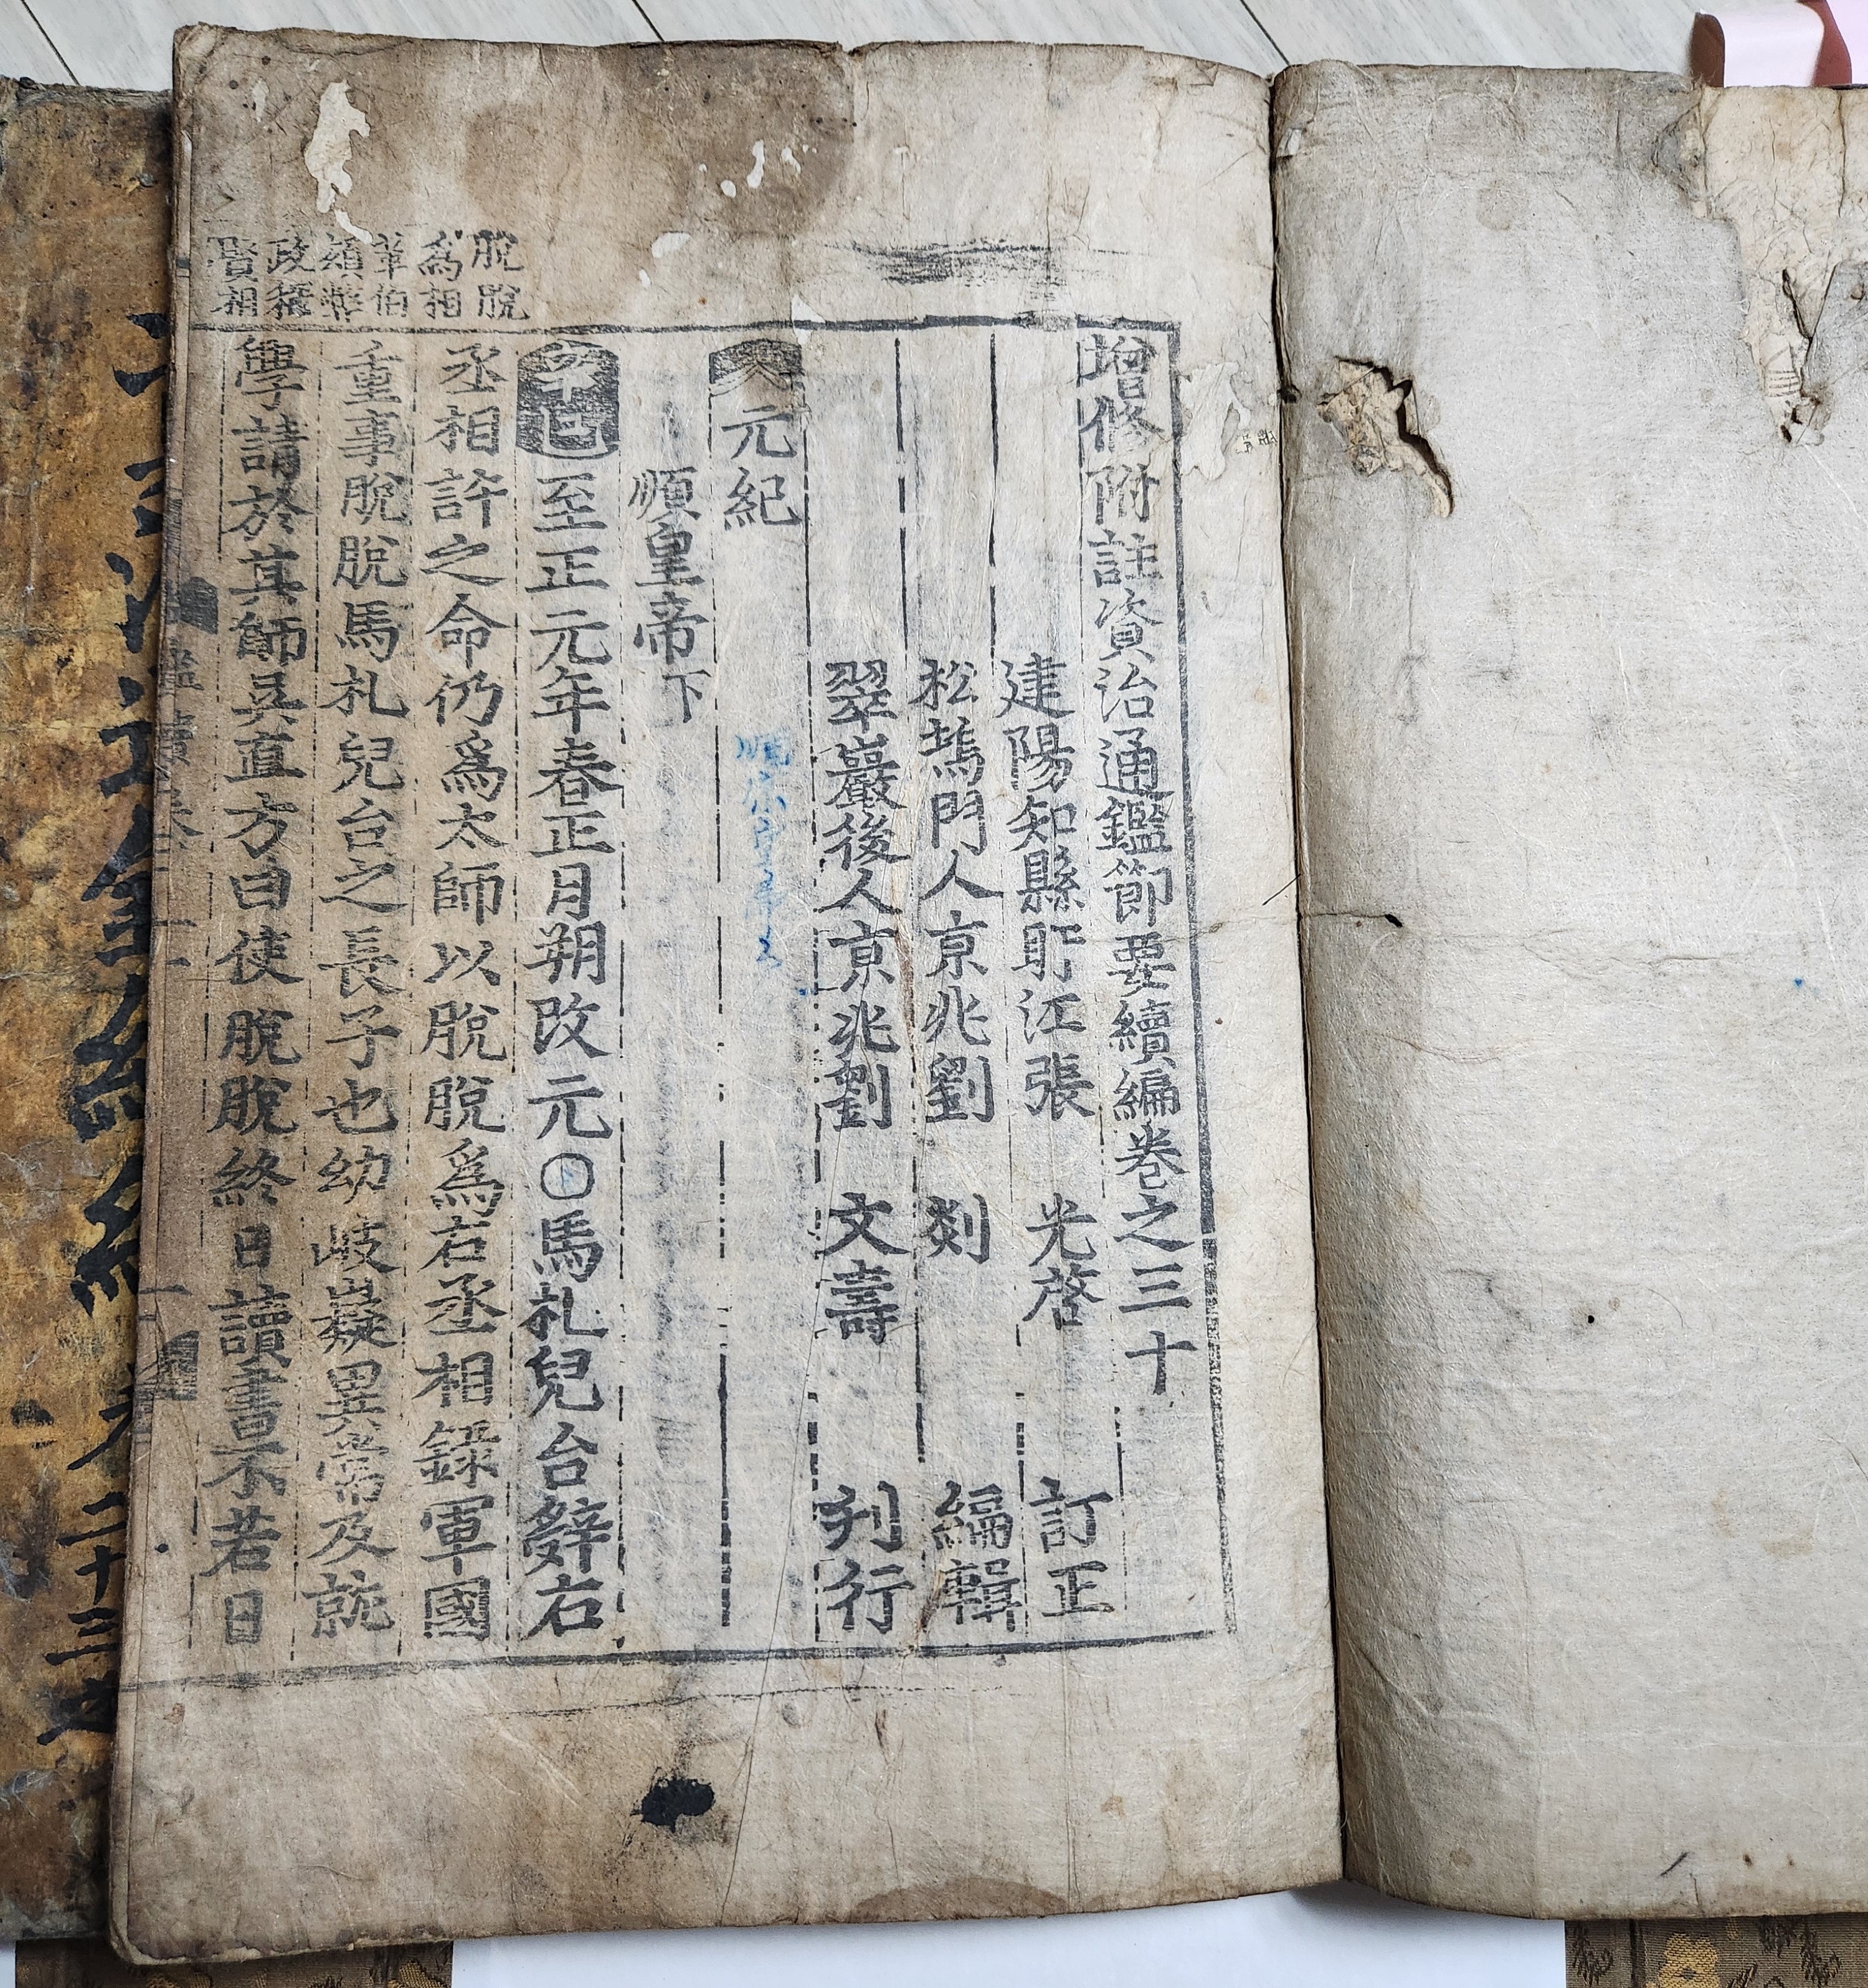 增修附註資治通鑑節要續編卷之三十
建陽知縣盱江張 光啓 訂正
松塢門人京兆劉 剡 編輯
翠巖後人京兆劉 文壽 刋行
元紀
順皇帝下
辛巳至正元年春正月朔改元○馬札兒台辭右
丞相許之命仍爲太師以脫脫爲右丞相錄軍國
重事脫脫馬札兒台之長子也幼岐嶷異常及就
學請於其師吳直方曰使脫脫終日讀書不若日
脫脫
爲相
革伯
顔弊
政稱
賢相